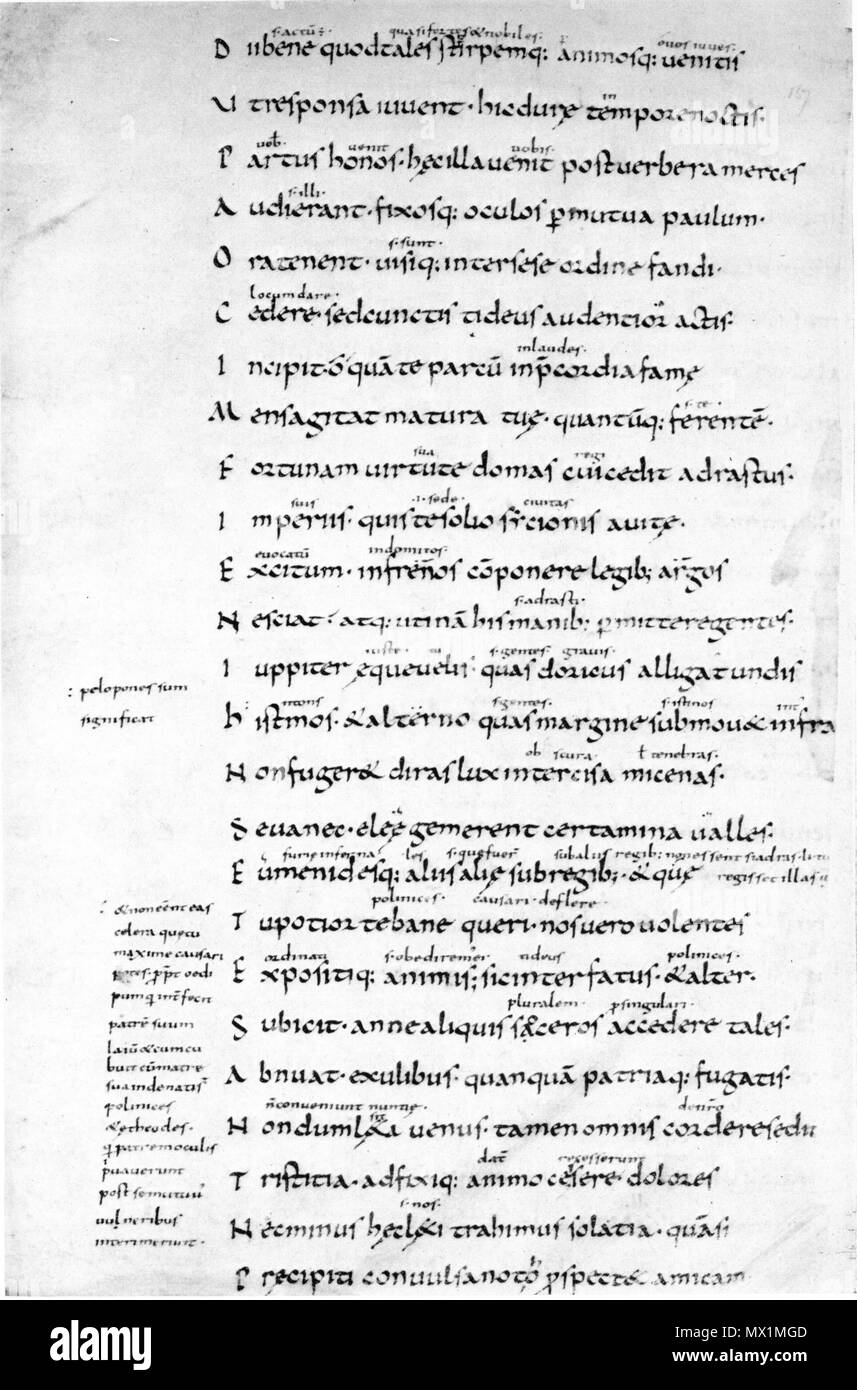 s· actū ÷ quasi fortes & nobiles· ouesiuues·
D iibene quodtales stirpemq: animosq: uenitis
167
in
U tresponsa uiuent· hicdurę temporenostis·
uob uenit uobis·
P artus honos· hęcilla uenit postuerbera merces
s· illi·
A udierant· fixosq: oculos p mutua paulum·
s· sunt·
O ratenent· uisiq: intersese ordine fandi·
locum dare·
C edere· sedcunctis tideus audentior actis·
inlaudes·
I ncipit· ō quāte partū inp̄cordia famę
s· te·
M ensagitat matura tuę· quantūq: ferentē·
sua regi
F ortunam uirtute domas cuicedit adrastus·
suis i· sede· ciuitas
I mperiis· quis te solio sycionis auitę·
euocatū indomitos·
E xcitum· infrenos cōponere legib; argos
s· adrasti·
N esciat· atq: utinā his manib; p mitteregentes·
iuste s· gentes· grauis·
I uppiter ęqueuelis· quas doricus alligat undis
: pelopones sum
significat
mons s· gentes· s· istmos int
h istmos· & alterno quas margine submou& infra
ob scura· t tenebras·
N onfuger& diras lux intercisa micenas·
S euanec· eleę gemerent certamina ualles·
furię inferna les s· quę fuer subaliis regib;
E umenidesq: aliis alię subregib;· & quę
regisset illas
polinices· causari· deflere·
T upotior tebane queri· nosuero uolentes
ordinati s· obediremter tideus polinices·
E xpositiq: animis; sicinterfatus· & alter·
pluralem· p singulari·
S ubicit· anne aliquis s&ceros accedere tales·
A bnuat· exulibus· quanquā patriaq: fugatis·
n̄ conueniunt nuntię·
N ondum l&a uenus· tamen omnis corderesedit
dat recesserunt
T ristitia· adfixiq: animo cesere dolores
s· nos·
N ecminus hęcl&i trahimus solatia· quāsi
P recipiti conuulsanoto pspect& amicam
& non eent eas
celera quecū
maxime causari
potes· ppt oedi
pum q intfecit
patrē suum
laiū & cumcu
buit cū matre
sua indenatis
polinices
& etheodes·
q patrem oculis
puauerunt
post se mutuu
uulneribus
interimerunt·
alamy
Image ID: MX1MGD
www.alamy.com